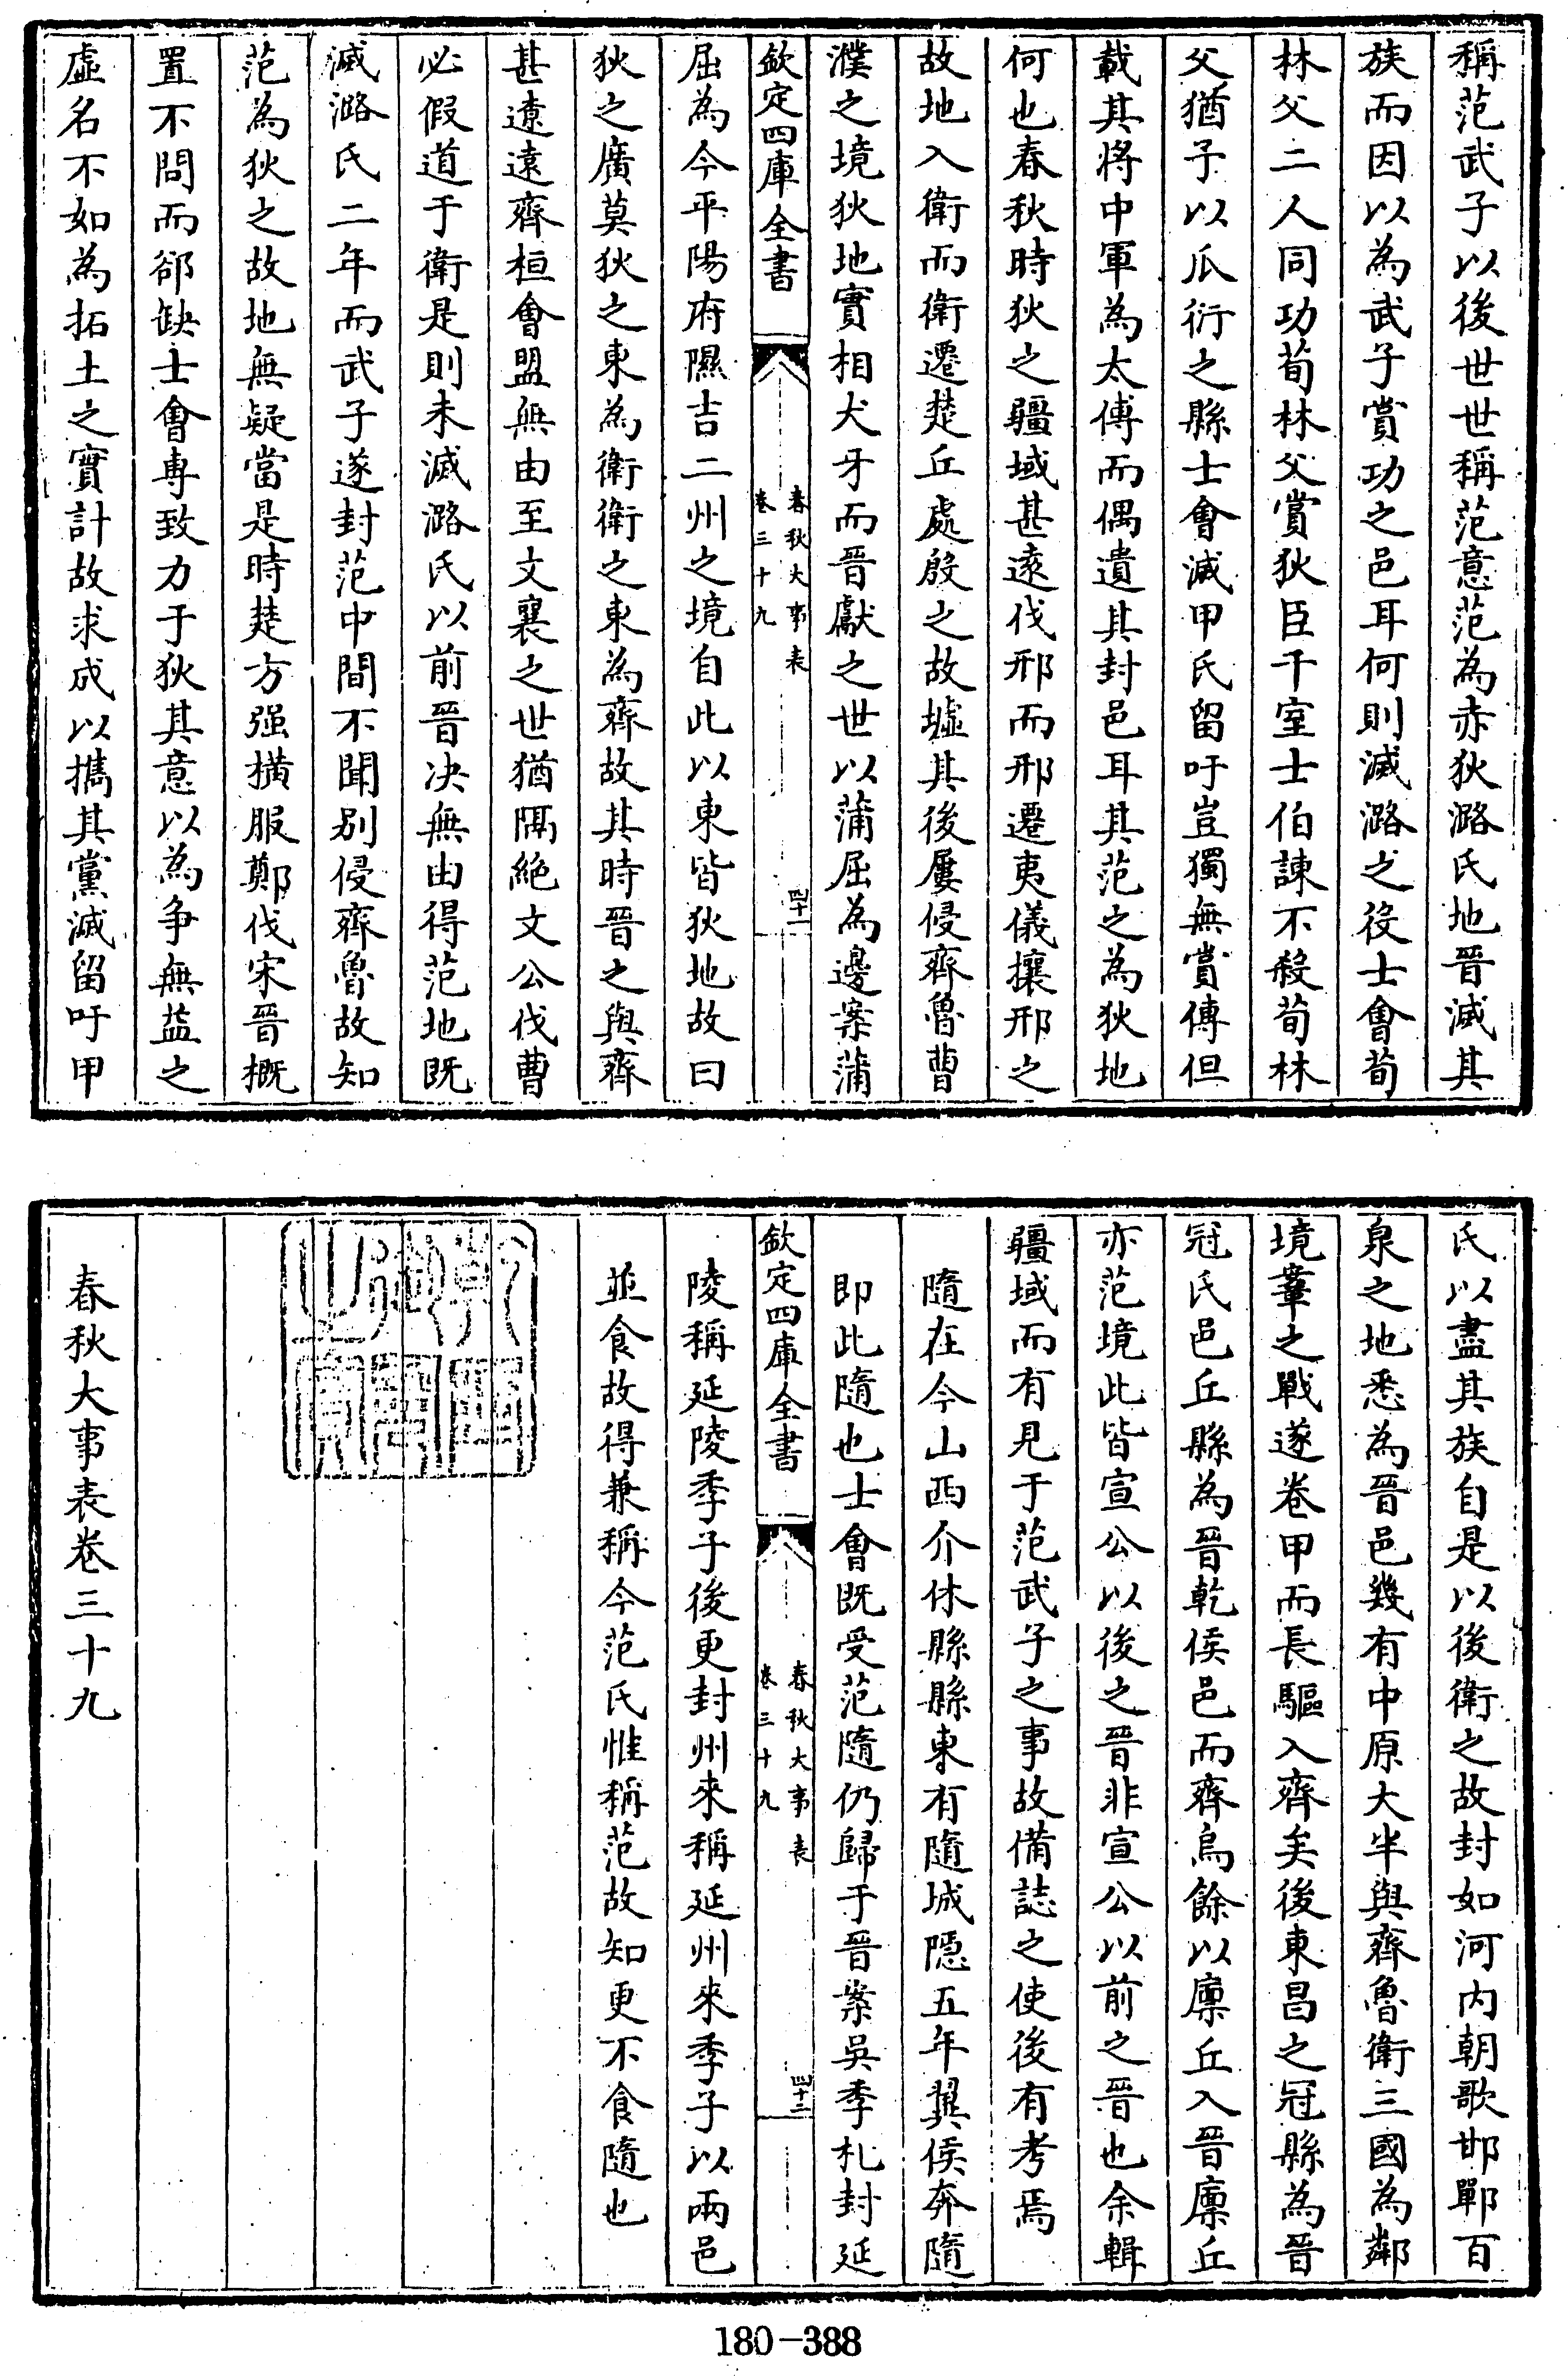 稱范武子以後世世稱范意范為赤狄潞氏地晉滅其
族而因以為武子賞功之邑耳何則滅潞之役士會荀
林父二人同功荀林父賞狄臣千室士伯諫不殺荀林
父猶予以瓜衍之縣士會滅甲氏留吁豈獨無賞傳但
載其將中軍為太傅而偶遺其封邑耳其范之為狄地
何也春秋時狄之疆域甚遠伐邢而邢遷夷儀攘邢之
故地入衛而衛遷楚丘處殷之故墟其後屢侵齊魯曹
濮之境狄地實相犬牙而晉獻之世以蒲屈為邊案蒲
欽定四庫全書
春秋大事表
卷三十九
四十一
屈為今平陽府隰吉二州之境自此以東皆狄地故曰
狄之廣莫狄之東為衛衛之東為齊故其時晉之與齊
甚遼遠齊桓會盟無由至文襄之世猶隔絶文公伐曹
必假道于衛是則未滅潞氏以前晉决無由得范地既
滅潞氏二年而武子遂封范中間不聞别侵齊魯故知
范為狄之故地無疑當是時楚方强横服鄭伐宋晉概
置不問而郤缺士會専致力于狄其意以為争無益之
虛名不如為拓土之實計故求成以攜其黨滅留吁甲
氏以盡其族自是以後衛之故封如河内朝歌邯鄲百
泉之地悉為晉邑幾有中原大半與齊魯衛三國為鄰
境鞌之戰遂卷甲而長驅入齊矣後東昌之冠縣為晉
冠氏邑丘縣為晉乾侯邑而齊烏餘以廩丘入晉廩丘
亦范境此皆宣公以後之晉非宣公以前之晉也余輯
疆域而有見于范武子之事故備誌之使後有考焉
隨在今山西介休縣縣東有隨城隱五年翼侯奔隨
即此隨也士會既受范隨仍歸于晉案吳季札封延
欽定四庫全書
春秋大事表
卷三十九
四十二
陵稱延陵季子後更封州來稱延州來季子以兩邑
並食故得兼稱今范氏惟稱范故知更不食隨也
春秋大事表卷三十九
180-388